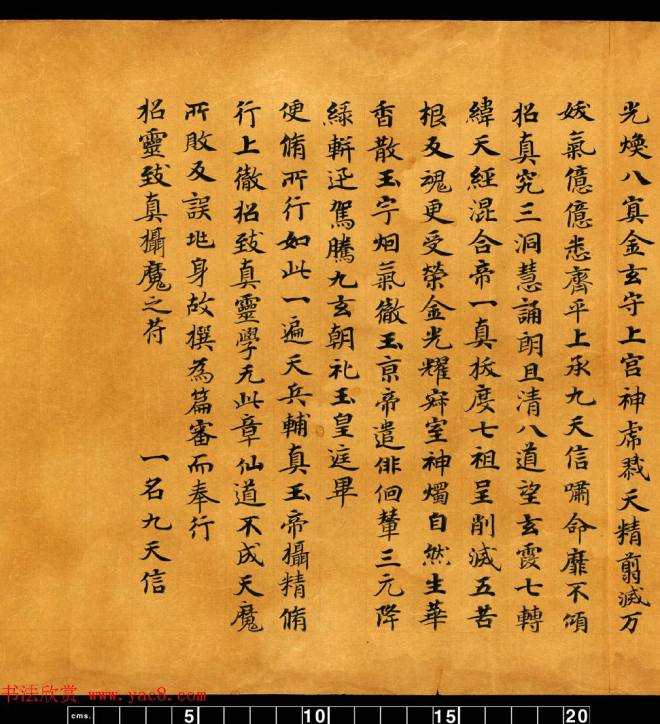 光煥八寘金玄守上官神虎戮天精翦滅万
妖氣億億悉齊平上承九天信嘯命靡不傾
招真究三洞慧誦朗且清八道望玄霞七轉
緯天經混合帝一真拔度七祖呈削滅五苦
根反魂更受榮金光耀寂室神燭自然生華
香散玉宇烟氣徹玉京帝遣俳佪輦三元降
綠軿迅駕騰九玄朝礼玉皇庭畢
便脩所行如此一遍天兵輔真玉帝攝精脩
行上徹招致真靈學无此章仙道不成天魔
所敗及誤地身故撰為篇審而奉行
招靈致真攝魔之苻 一名九天信
书法欣赏 www.yac8.com
cms. 5 10 15 20